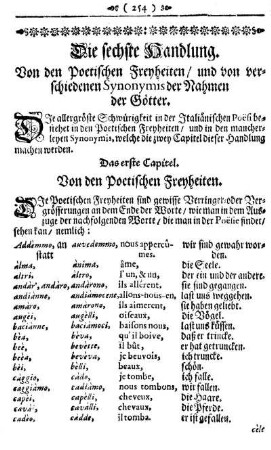 ( 254 )
Die sechste Handlung.
Von den Poetischen Freyheiten/ und von ver-
schiedenen Synonymis der Nahmen
der Götter.
Die allergröste Schwürigkeit in der Italiänischen Poësi be-
stehet in den Poetischen Freyheiten/ und in den mancher-
leyen Synonymis, welche die zwey Capitel dieser Handlung
machen werden.
Das erste Capitel.
Von den Poetischen Freyheiten.
Die Poetischen Freyheiten sind gewisse Verringer- oder Ver-
grösserungen an dem Ende der Worte/ wie man in dem Aus-
zuge der nachfolgenden Worte/ die man in der Poësie findet/
sehen kan/ nemlich:
Addemmo, an statt avvedemmo, nous apperçû- mes. wir sind gewahr wor- den.
alma, ánima, âme, die Seele.
altri, altro, l'un, & nu, der ein und der andere.
andár', andáro, andárono, ils allérent, sie sind gegangen.
andiánne, andiámocene, allons-nous-en, last uns weggehen.
amáro, amárono, ils aimerent, sie haben geliebt.
augéi, augélli, oiseaux, die Vögel.
baciánne, baciámoci, baisons nous, last uns küssen.
béa, béva, qu'il boive, daß er trincke.
béè, bevétte, il bût, er hat getruncken.
beéa, bevéva, je beuvois, ich truncke.
béi, bélli, beaux, schön.
cággio, cádo, je tombe, ich falle.
caggiámo, cadiámo, nous tombons, wir fallen.
capéi, capélli, cheveux, die Haare.
cavá', cavalli, chevaux, die Pferde.
cadéo, cádde, il tomba. er ist gefallen.
céle